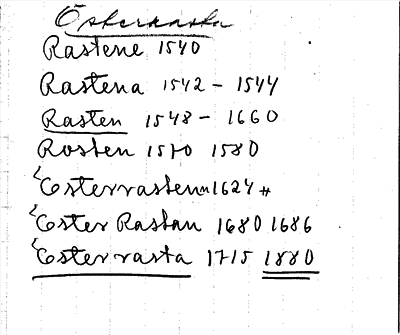 Österrasta
Rastene 1540
Rastena 1542 - 1544
Rasten 1548 - 1660
Rosten 1570 1580
Österrastenn 1624 #
Öster Rastan 1680 1686
Österrasta 1715 1880